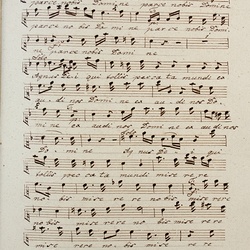 parce nobis Domine parce nobis Domine
parce nobis Domine parce nobis Domi
ne parce nobis Domine
Agnus Dei qui tollis peccata mundi ex
audi nos Domine exaudi nos Do
mine exaudi nos Domine exaudi nos
Domine Agnus Dei qui
tollis peccata mundi miserere
nobis miserere nobis misere
re nobis miserere nobis miserere
miserere nobis miserere